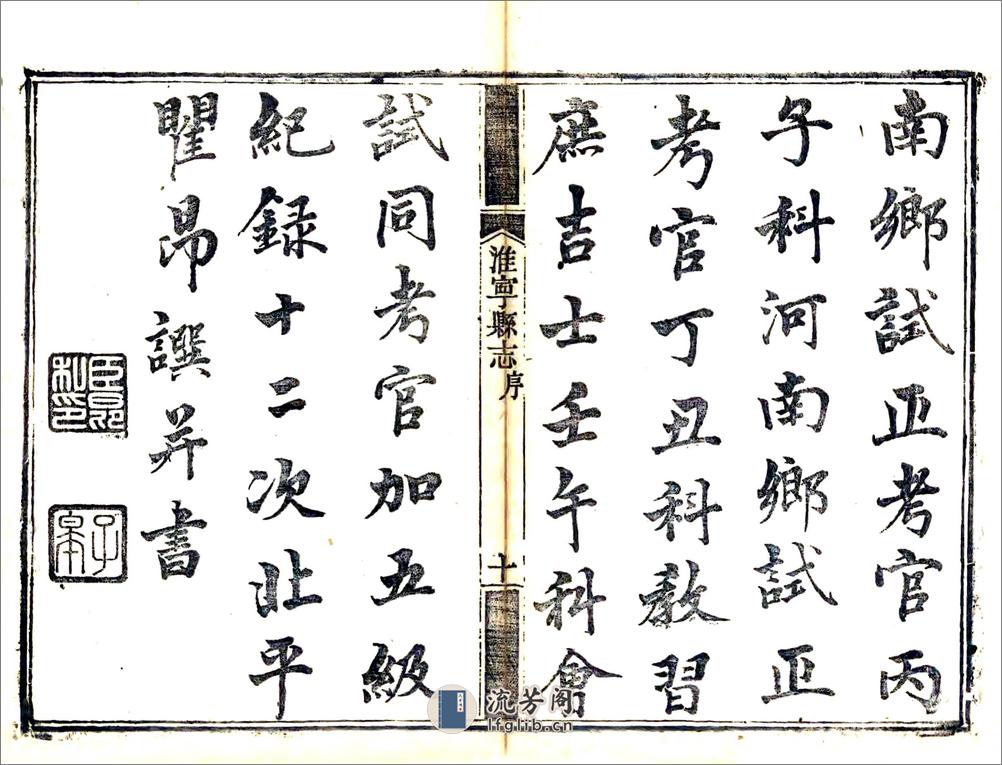 南鄉試正考官丙
子科河南鄉試正
考官丁丑科教習
庶吉士壬午科會
淮寧縣志 序
十
試同考官加五級
紀録十二次北平
瞿昂譔并書
流芳阁
lfglib.cn